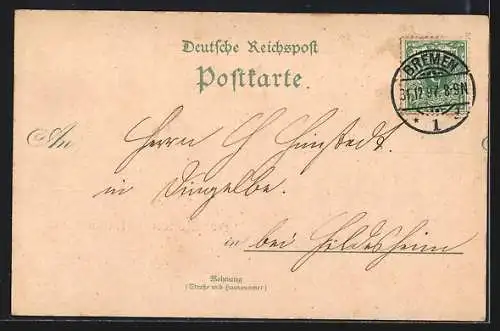 Deutsche Reichspost
Postkarte
BREMEN
31.12.97. 8-9N
* 1
An Herrn H Himstedt.
in Dingelbe.
in bei Hildesheim
Wohnung
(Straße und Hausnummer)